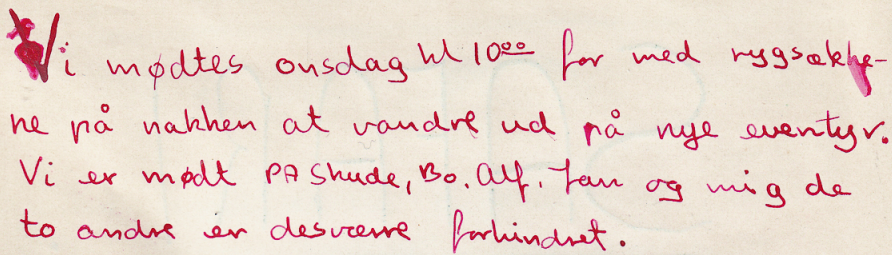 Vi mødtes onsdag kl 10⁰⁰ for med rygsække-
ne på nakken at vandre ud på nye eventyr.
Vi er mødt PA Skude, Bo, Alf, Jan og mig de
to andre er desværre forhindret.